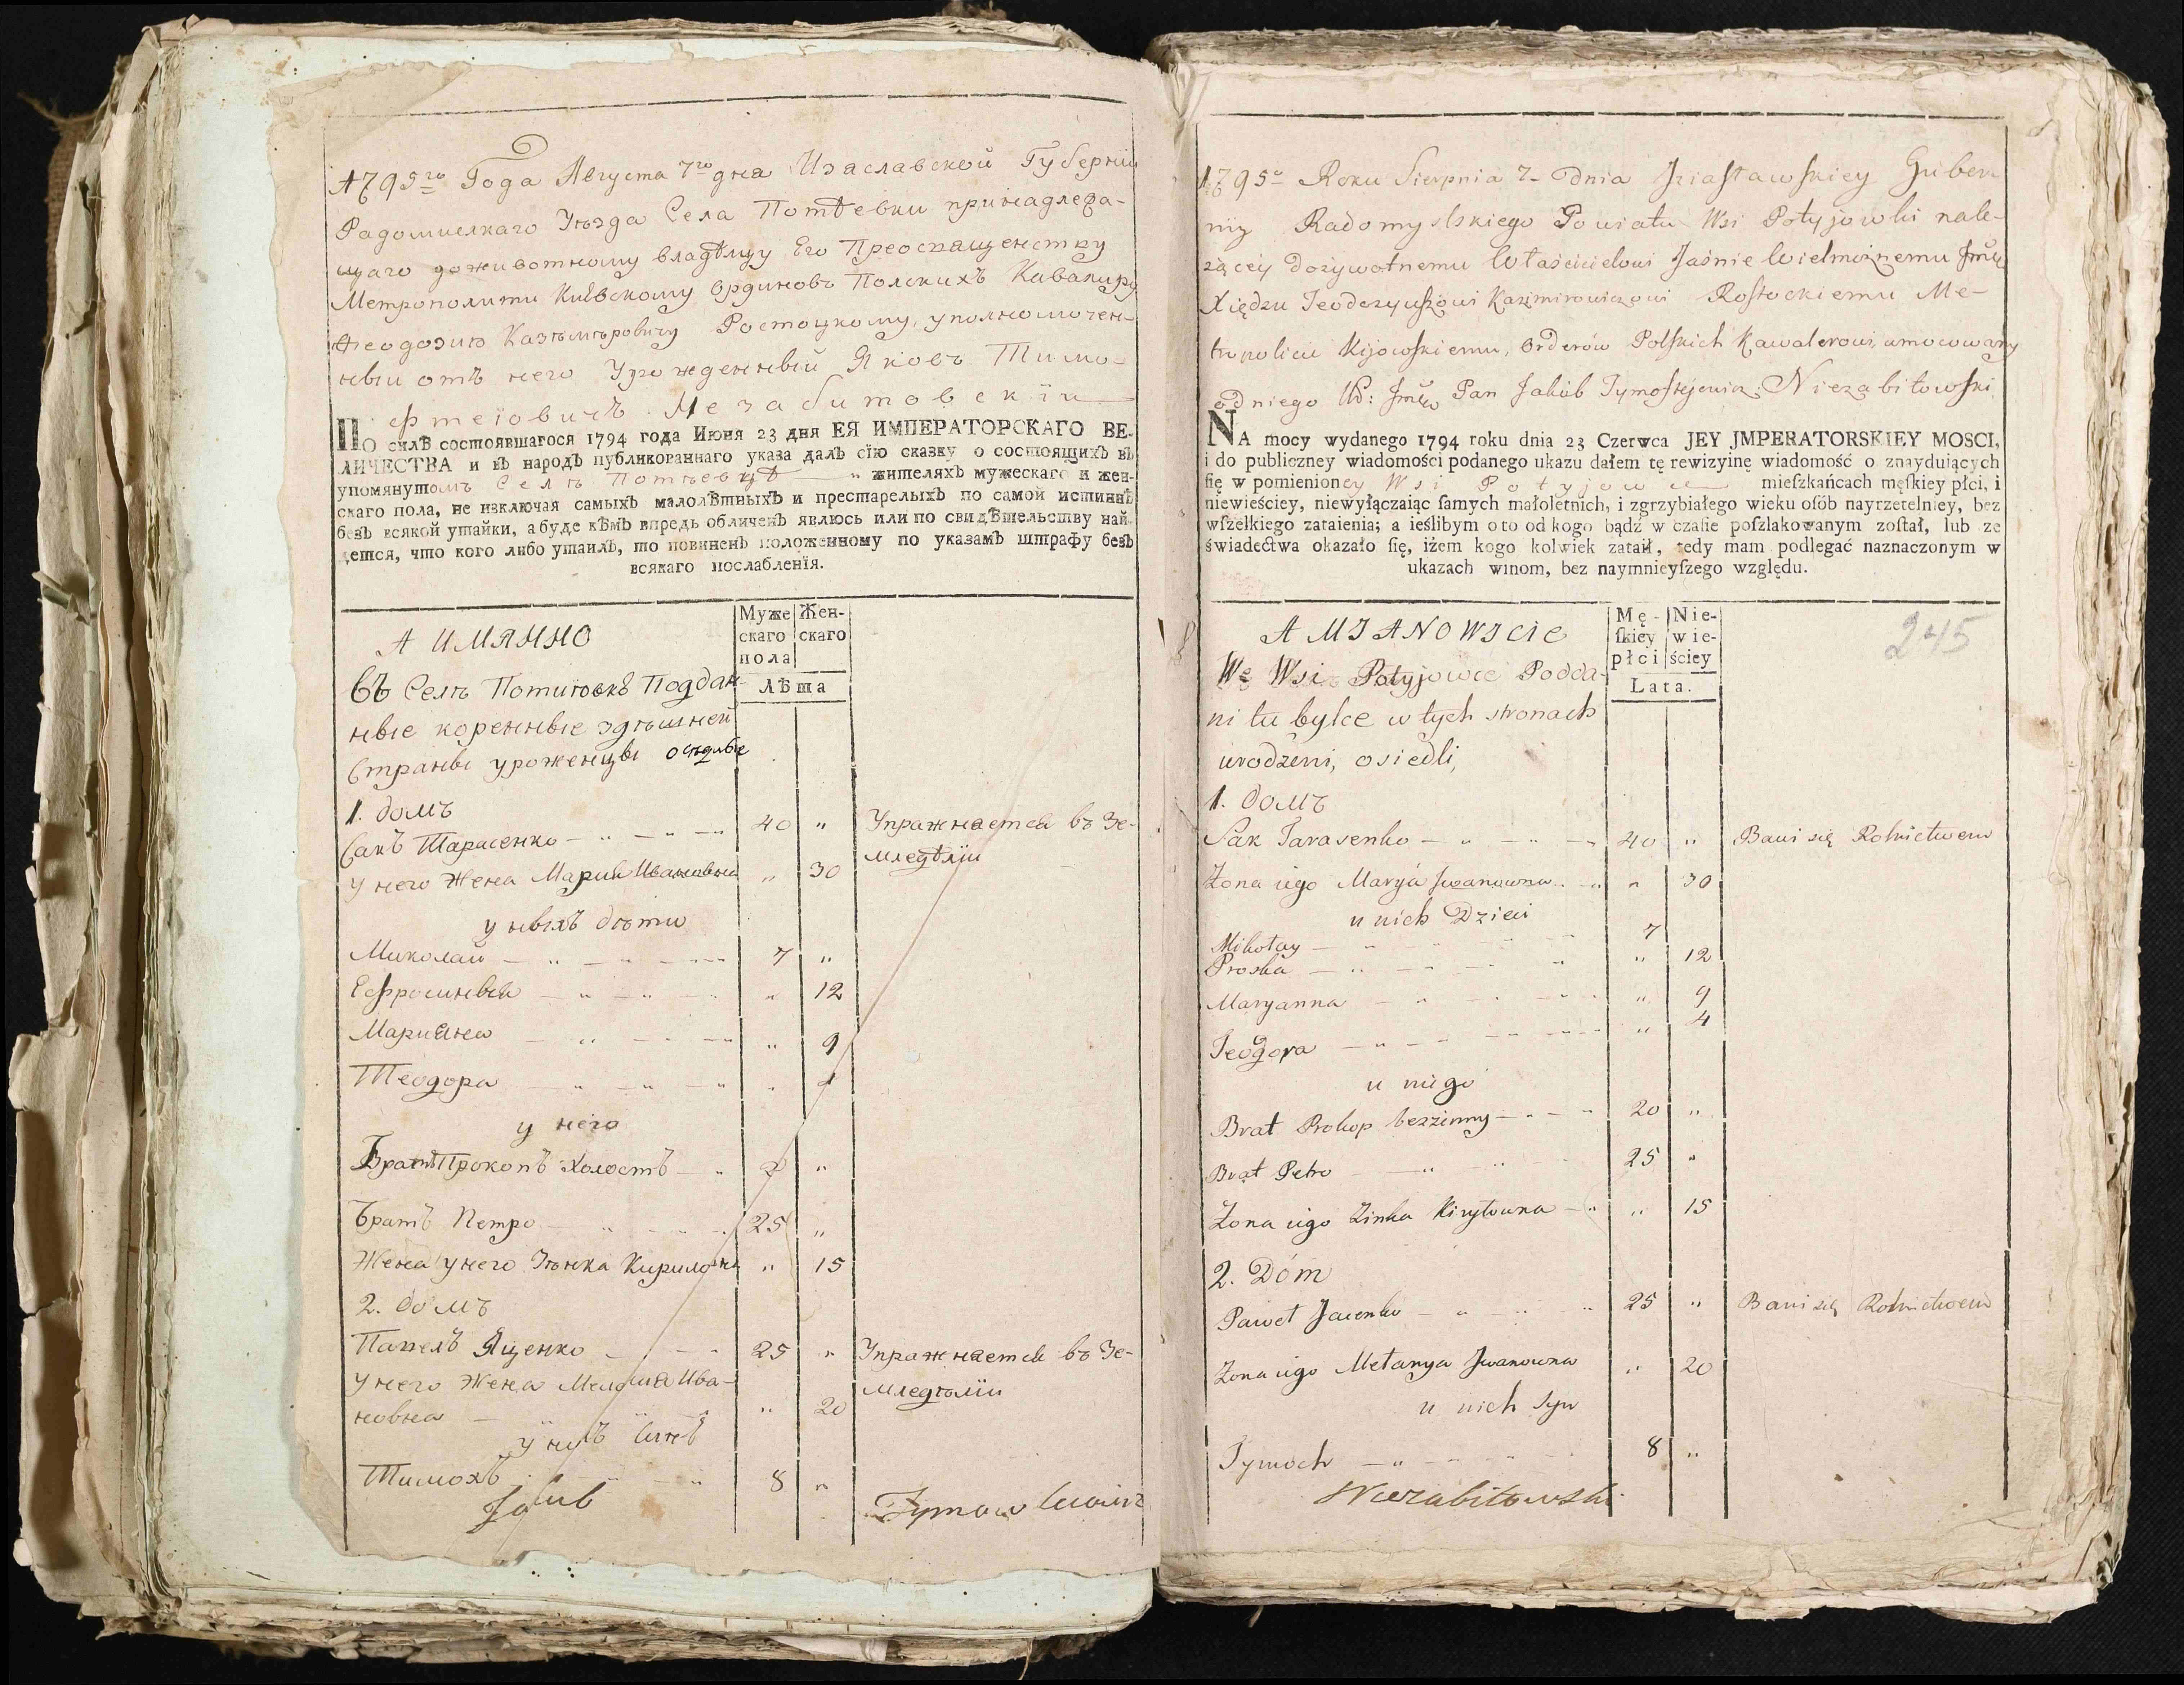 1795го Года Августа 7го дна Изаславской Губерніи
Радомиелкаго Уѣзда Села Потѣевки принадлежа-
щаго доживотному владѣлцу Его Преосвященству
Метрополити Киевскому Ординовъ Полскихъ Кавалиру
Феодозию Казѣмѣровичу Ростоцкому, уполномочен-
ный отъ него Урожденный Яковъ Тимо-
фтеіовичъ Незабитовскіи
ПО силѣ состоявшагося 1794 года Июня 23 дня ЕЯ ИМПЕРАТОРСКАГО ВЕ-
ЛИЧЕСТВА и въ народъ публикораннаго указа далъ сїю сказку о состоящихъ въ
упомянутомъ Селѣ Потѣевцѣ жителяхъ мужескаго и жен-
скаго пола, не изключая самыхъ малолѣтныхъ и престарелыхъ по самой истиннѣ
безъ всякой утайки, а буде кѣмъ впредь обличенъ явлюсь или по свидѣтельству най-
дется, что кого либо утаилъ, то повиненъ положенному по указамъ штрафу безъ
всякаго послабленїя.
А ИМЯННО
Муже Жен-
скаго скаго
пола
Лѣта
Въ Селѣ Потиювкѣ Поддан-
ные коренные здѣшней
Страны уроженцы осѣдлые
1. домъ
Сакъ Тарасенко — " — " — 40 " Упражнается въ Зе-
мледѣлїи
у него Жена Мария Ивановна " 30
у ныхъ дѣти
Миколай — " — " — 7 "
Ефросинья — " — " — " 12
Марияна — " — " 9
Теодора — " — " — " "
у него
Братъ Прокопъ Холостъ — " "
Братъ Петро — " — 25 "
Жена у него Зѣнка Кирилона " 15
2. домъ
Павелъ Яценко — — — 25 " Упражнается въ Зе-
мледѣлїи
У него Жена Мелания Ива-
новна — " 20
у нихъ Синъ
Тимохъ — " — " 8 "
Jakub Tymowlewicz
1795o Roku Sierpnia 7. Dnia Jziasławskiey Guber
nij Radomyslskiego Powiatu Wsi Potyjowki nale-
zącey dożywotnemu Właścicielowi Jaśnie Wielmożnemu Jmci
Xiędzu Teodozyuszowi Kazimirowiczowi Rostockiemu Me-
tropolicie Kijowskiemu, Orderów Polskich Kawalerowi, umocowany
od niego Ur: Jmci Pan Jakub Tymoftejewicz Niezabitowski
NA mocy wydanego 1794 roku dnia 23 Czerwca JEY JMPERATORSKIEY MOSCI,
i do publiczney wiadomości podanego ukazu dałem tę rewizyinę wiadomość o znayduiących
ſię w pomienioney Wsi Potyjowce mieſzkańcach męſkiey płci, i
niewieściey, niewyłączaiąc ſamych małoletnich, i zgrzybiałego wieku oſób nayrzetelniey, bez
wſzelkiego zataienia; a ieślibym o to od kogo bądź w czaſie poſzlakowanym zoſtał, lub ze
świadectwa okazało ſię, iżem kogo kolwiek zataił, tedy mam podlegać naznaczonym w
ukazach winom, bez naymnieyſzego względu.
A MJANOWJCIE
Mę- Nie-
ſkiey wie-
płci ściey
Lata.
245
We Wsi Potyjowce Podda-
ni tu bylce w tych stronach
urodzeni, osiedli,
1. домъ
Sak Tarasenko — " — " — 40 " Bawi się Rolnictwem
Żona iego Marya Jwanowna " 30
u nich Dzieci
Mikołay — " — " 7
Proska — " — " " 12
Maryanna — " — " 9
Teodora — " — " 4
u niego
Brat Prokop bezżenny — " — 20 "
Brat Petro — " 25 "
Żona iego Zinka Kiryłowna — " " 15
2. Dóm
Paweł Jacenko — " " 25 " Bawi się Rolnictwem
Żona iego Mełanya Jwanowna " 20
u nich Syn
Tymoch — " — 8 "
Niezabitowski